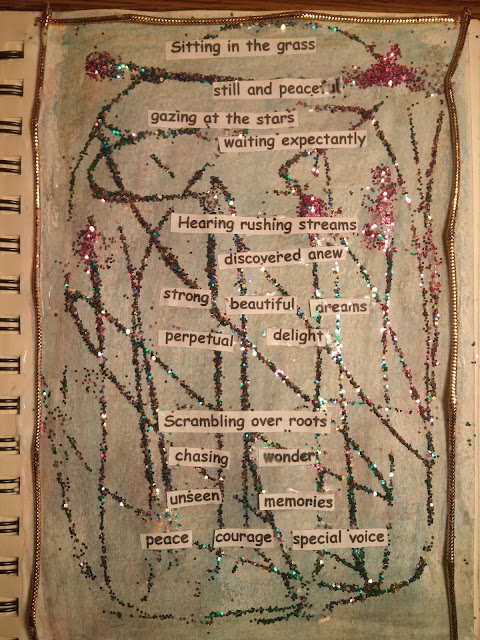 Sitting in the grass
still and peaceful
gazing at the stars
waiting expectantly
Hearing rushing streams
discovered anew
strong beautiful dreams
perpetual delight
Scrambling over roots
chasing wonder
unseen memories
peace courage special voice